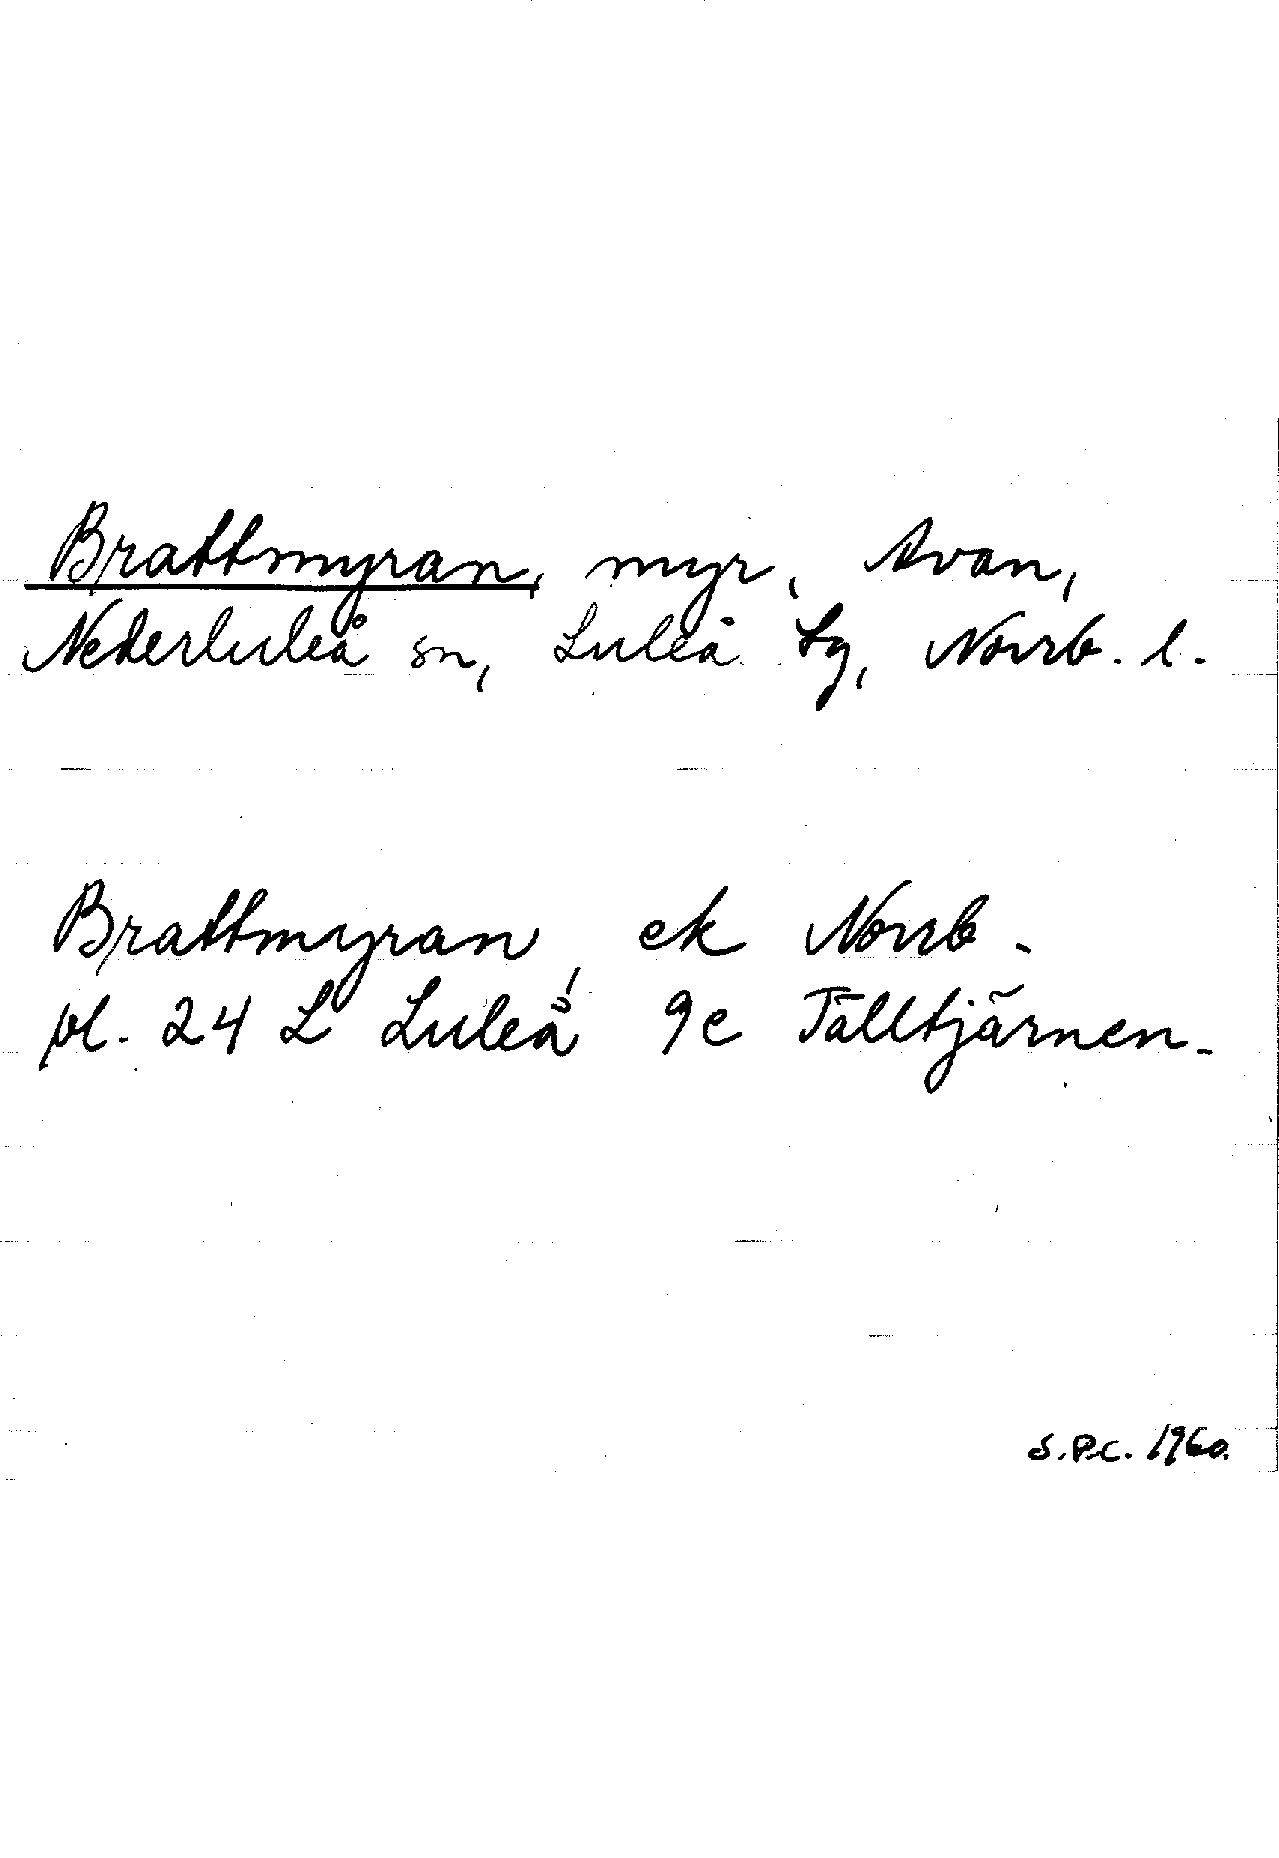 Brattmyran, myr, Avan,
Nederluleå sn, Luleå tg, Norrb. l.
Brattmyran, ek Norrb.
bl. 24 L Luleå 9e Tälltjärnen.
S.P.C. 1960.